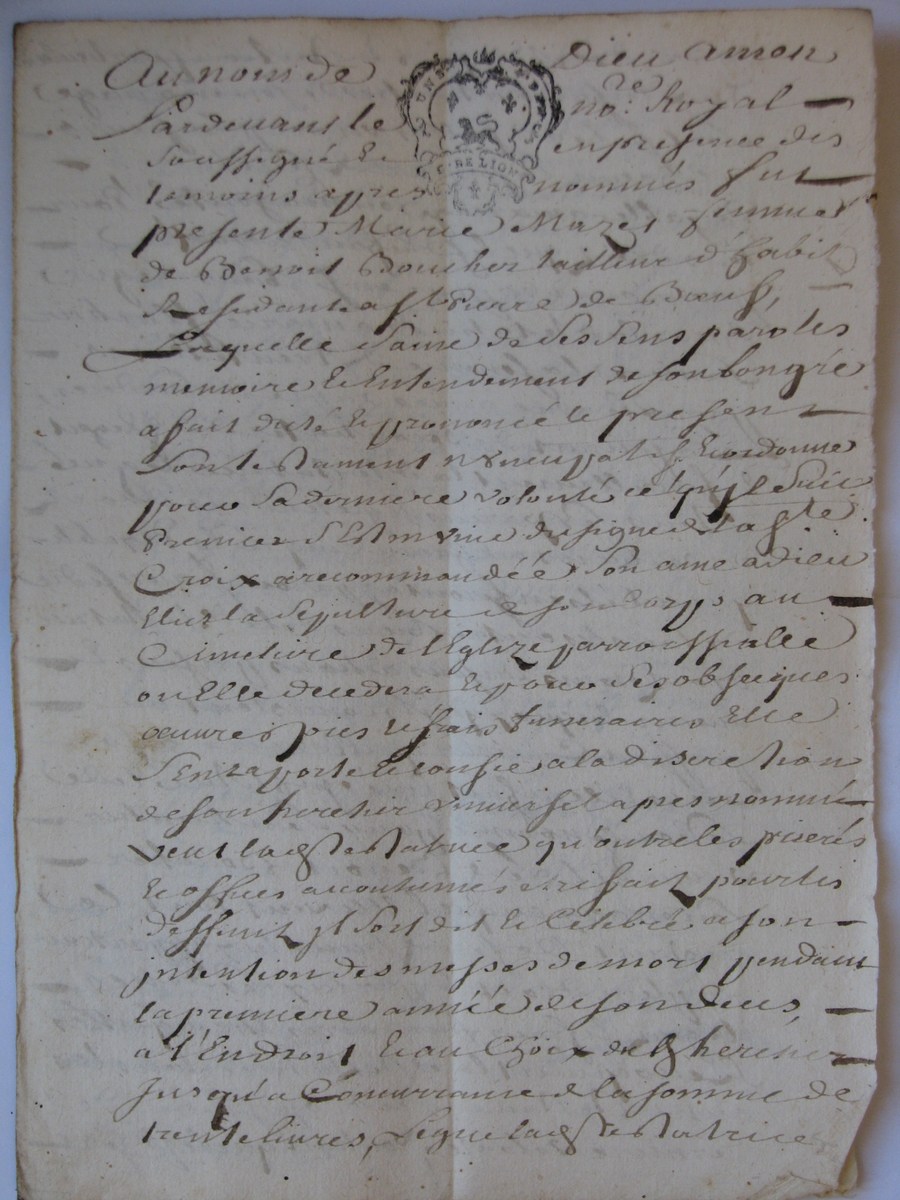 Au nom de Dieu amen
Pardevant le no.re Royal
Soussigné et en presence des
temoins apres nommés fut
presente Marie Mazet femme
de Benoit Boucher tailleur d'habit
Residente a st Pierre de Bœuf,
Laquelle saine de ses sens paroles
memoire et Entendement de son bon gré
a fait dicté et prononcé le present
Son testament nuncupatif, Et ordonne
pour sa derniere volonté ce qu'il suit
Premier s'Est munie du signe de la ste
Croix a recommandéé Son ame a dieu
Elizt la sepulture de son corps au
Cimetiere de l'Eglize parroissialle
ou Elle decedera et pour ses obseques
œuvres pies et frais funeraires Elle
S'en raporte et confie a la discretion
de son heritier universel apres nommé
veut lad. testatrice qu'outre les prieres
et offices accoutumés Etre fait pour les
deffunt, jl soit dit et Celebré a son
jntention des messes de mort pendant
la premiere année de son deces,
a l'Endroit et au Choix dud. heritier
Jusqu'a Concurrance de la somme de
trente livres, Legue lad. testatrice
G. DE LION